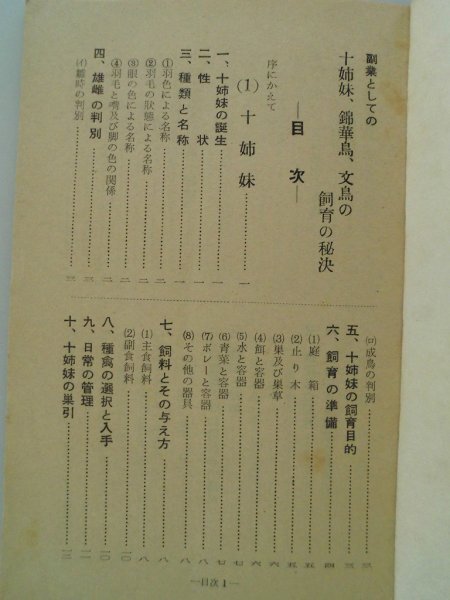 副業としての
十姉妹、錦華鳥、文鳥の
飼育の秘決
―目次―
序にかえて
(1) 十姉妹……一
一、十姉妹の誕生……一
二、性状……一
三、種類と名称……一
(1)羽色による名称……二
(2)羽毛の状態による名称……二
(3)眼の色による名称……二
(4)羽毛と嘴及び脚の色の関係……二
四、雄雌の判別……三
(イ)雛時の判別……三
(ロ)成鳥の判別……三
五、十姉妹の飼育目的……三
六、飼育の準備……四
(1)庭箱……五
(2)止り木……五
(3)巣及び巣草……六
(4)餌と容器……六
(5)水と容器……七
(6)青菜と容器……七
(7)ボレーと容器……八
(8)その他の器具……八
七、飼料とその与え方……八
(1)主食飼料……八
(2)副食飼料……一〇
八、種禽の選択と入手……一〇
九、日常の管理……一一
十、十姉妹の巣引……一三
―目次1―